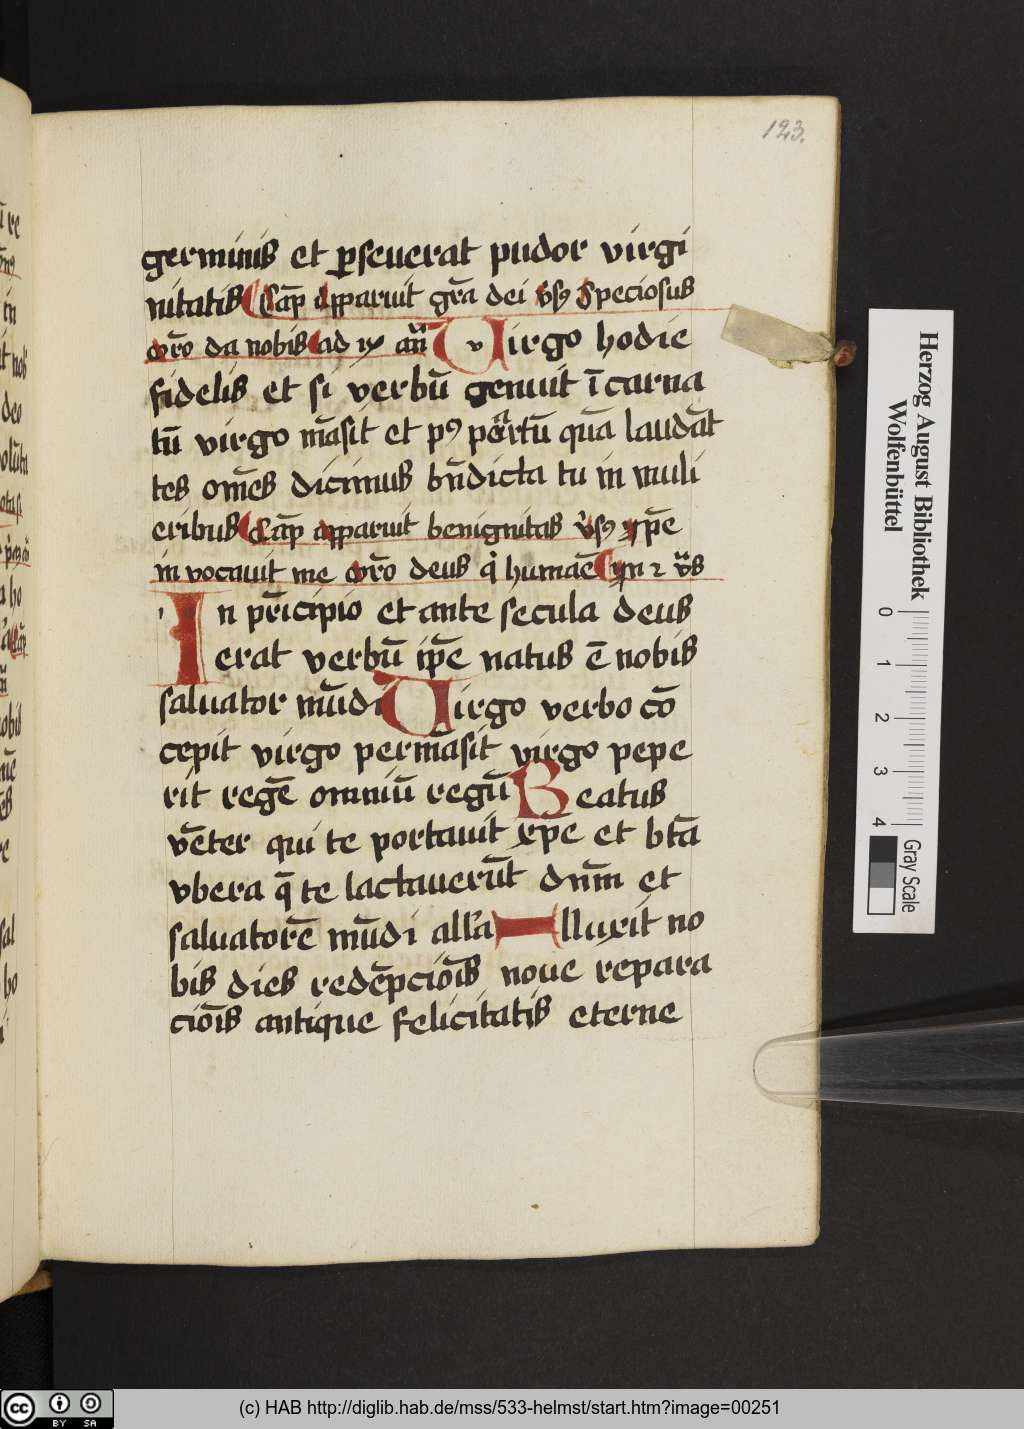 123.
germinis et p̱seuerat pudor virgi
nitatis Cap̄ apparuit gr̄a dei vsꝯ Speciosus
or̄o da nobis ad ix an̄ Uirgo hodie
fidelis et si verbū genuit īcarna
tū virgo māsit et pꝯ partū quā laudāt
tes om̄es dicimus bn̄dicta tu in muli
eribus Cap̄ apparuit benignitas vsꝯ xp̄e
in vocauit me or̄o deus q̇ humāe ymꝛ vs
In prīcipio et ante secula deus
erat verbū ip̄e natus ē nobis
saluator mūdi Uirgo verbo cō
cepit virgo permāsit virgo pepe
rit regē omniū regū Beatus
vēter qui te portauit xp̄e et bt̄a
vbera q̄ te lactauerūt dn̄m et
saluatorē mūdi all'a Illuxit no
bis dies redēpciōis noue repara
ciōis antique felicitatis eterne
re
in
nob
deo
ho
sal
ho
Herzog August Bibliothek
Wolfenbüttel
0 1 2 3 4
Gray Scale
cc BY SA
(c) HAB http://diglib.hab.de/mss/533-helmst/start.htm?image=00251